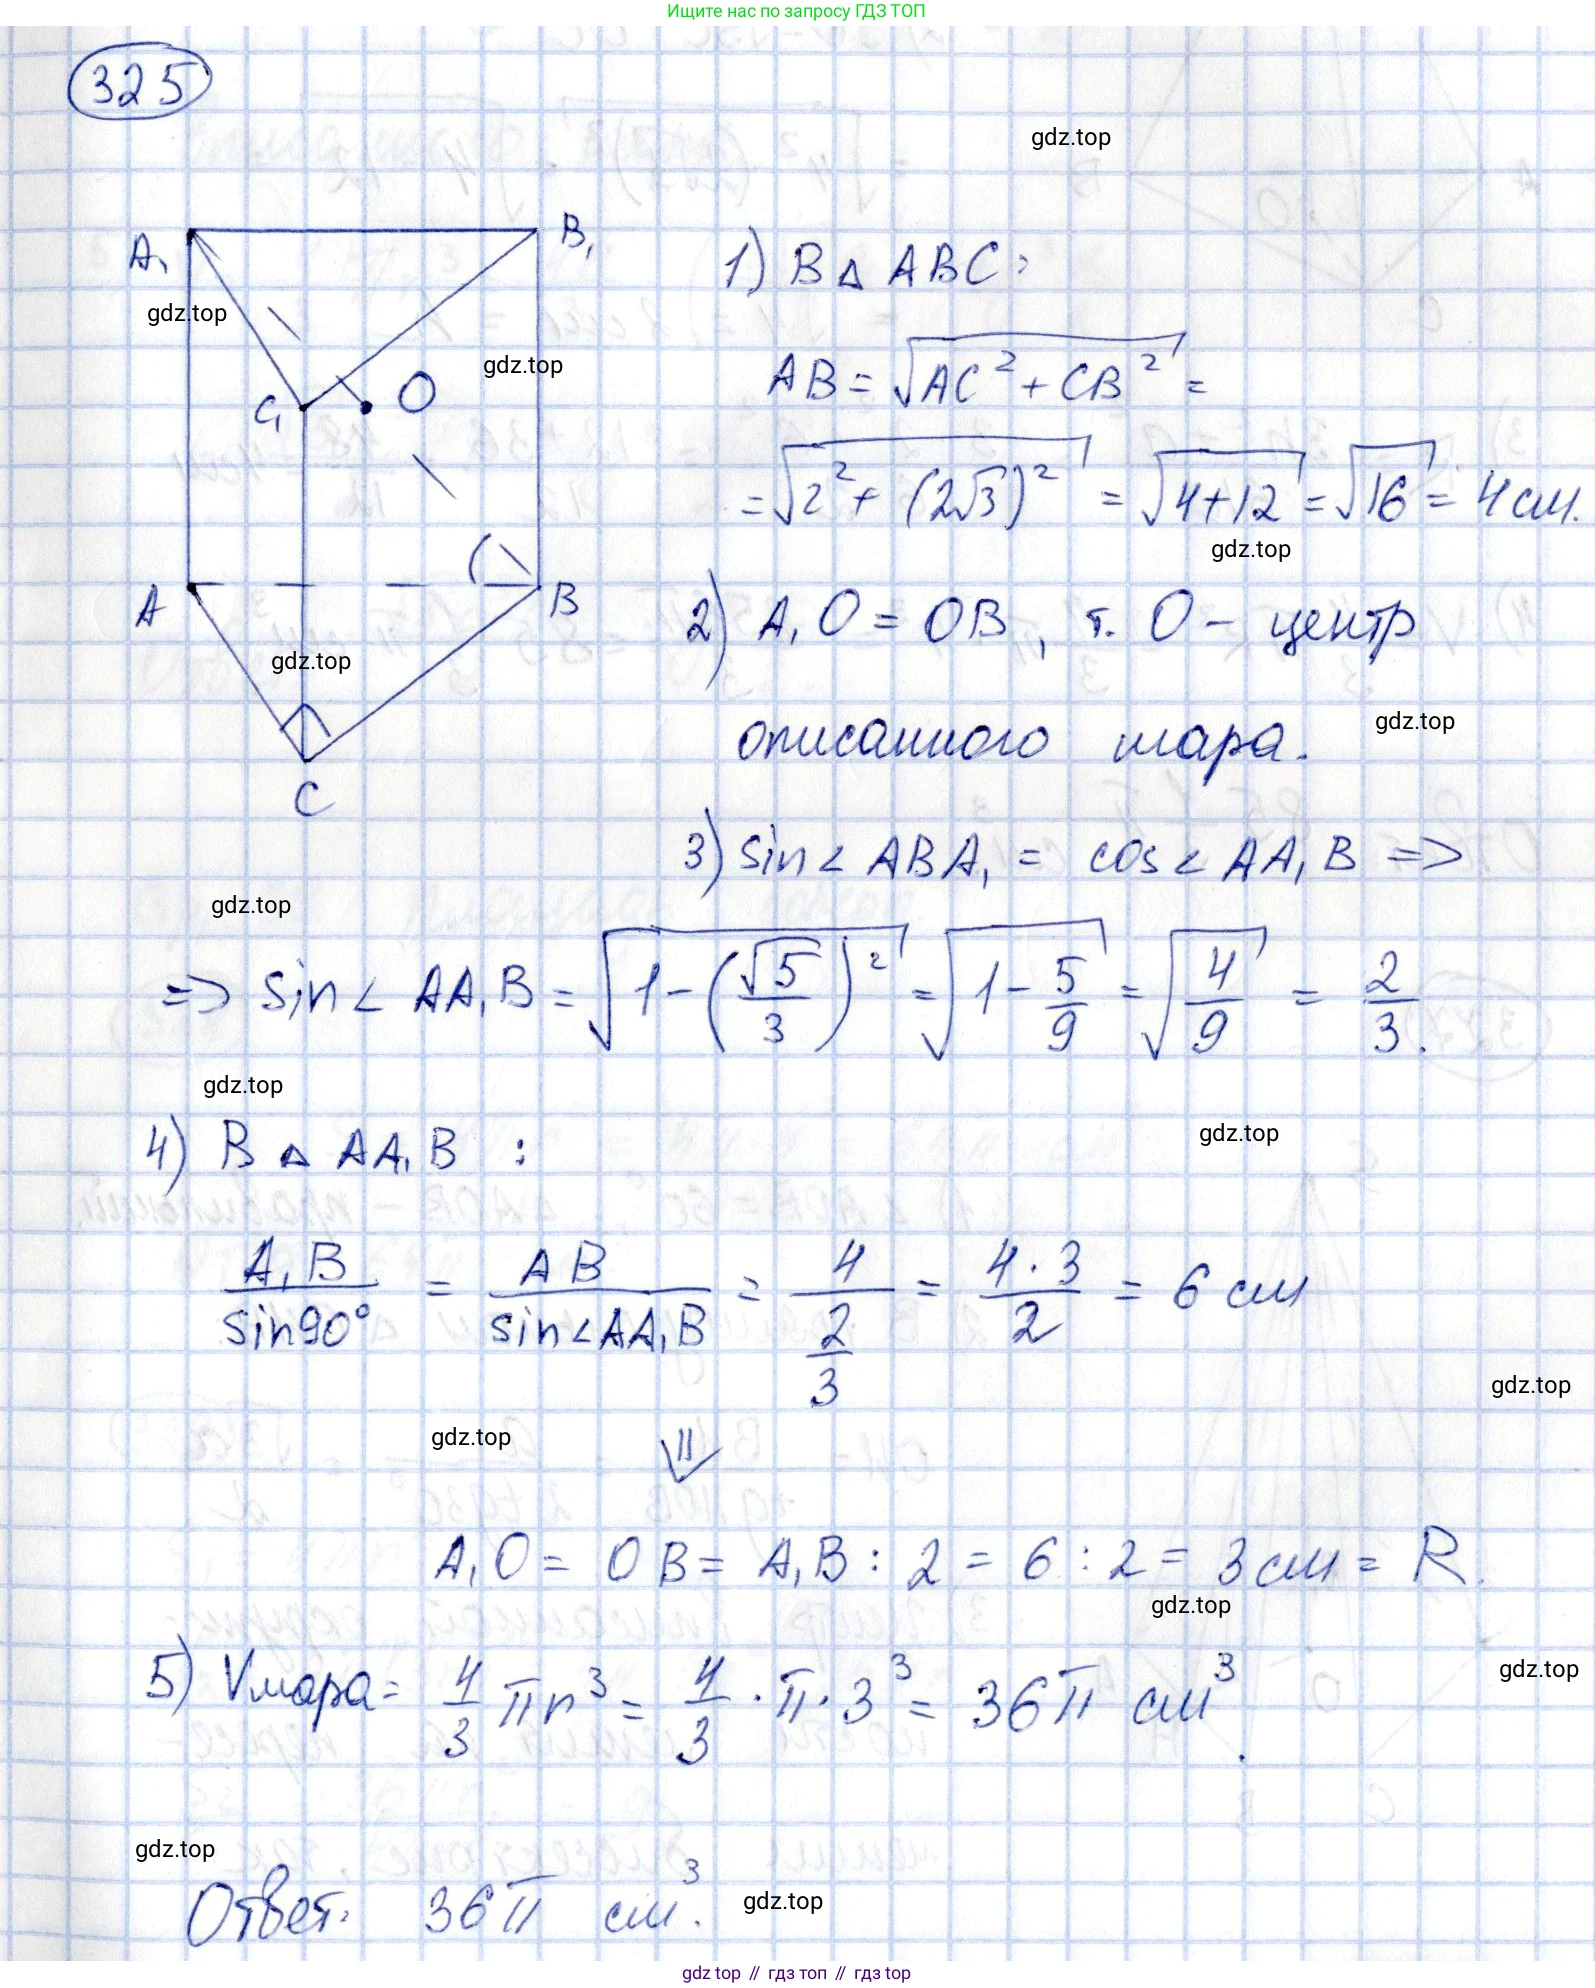 Ищите нас по запросу ГДЗ ТОП
325
gdz.top
A₁
B₁
1) В △ ABC:
gdz.top
gdz.top
AB = √(AC² + CB²) =
C₁
O
= √(2² + (2√3)²) = √(4+12) = √16 = 4 см.
gdz.top
A
B
2) A₁O = OB, т. O – центр
gdz.top
описанного шара.
gdz.top
C
3) sin∠ABA₁ = cos∠AA₁B =>
gdz.top
=> sin∠AA₁B = √(1 – (√5/3)²) = √(1 – 5/9) = √(4/9) = 2/3.
gdz.top
4) В △ AA₁B :
gdz.top
A₁B/sin90° = AB/sin∠AA₁B = 4/(2/3) = 4·3/2 = 6 см
gdz.top
gdz.top
⇓
A₁O = OB = A₁B : 2 = 6 : 2 = 3 см = R.
gdz.top
5) Vшара = 4/3 πr³ = 4/3 · π · 3³ = 36π см³.
gdz.top
gdz.top
Ответ: 36π см³.
gdz.top
gdz.top // гдз топ // гдз top